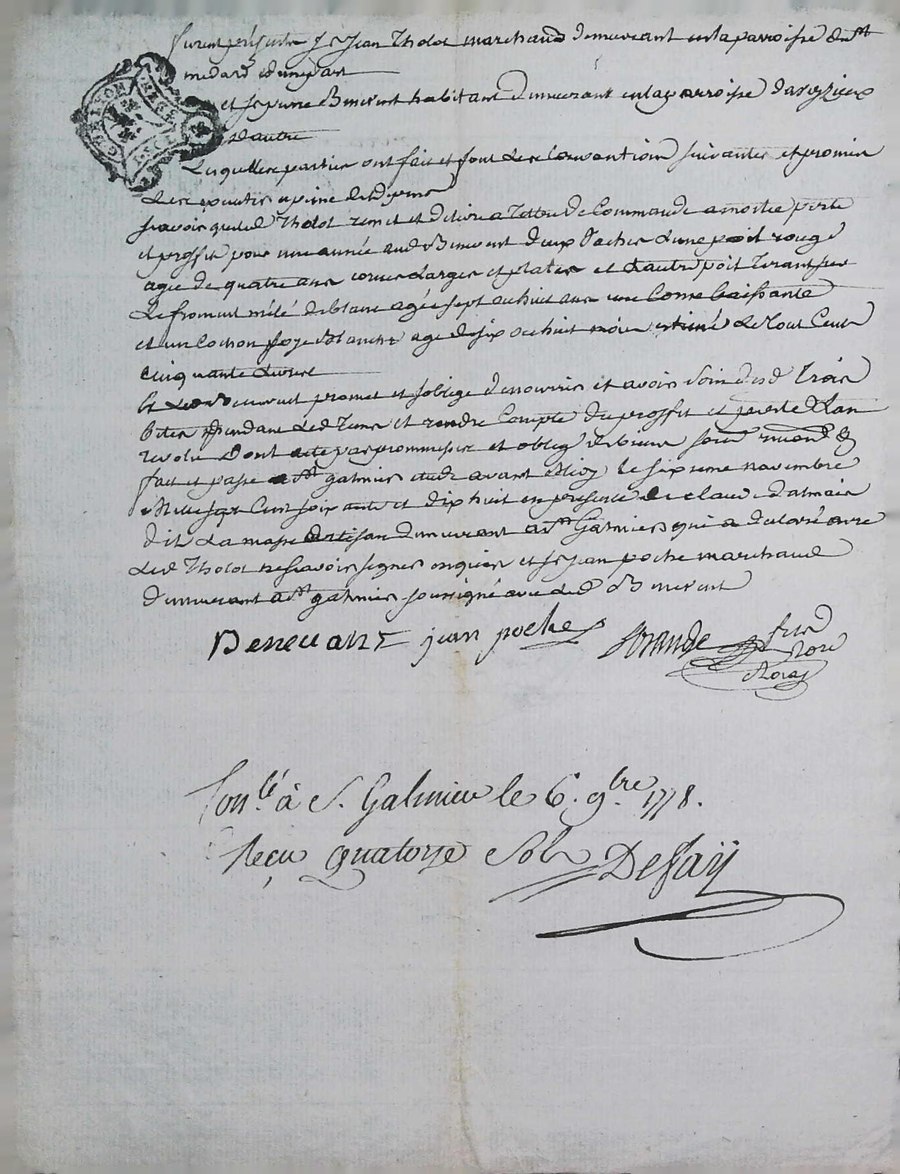 furent presents Sr Jean Tholot marchand demeurant en la parroisse de St
medard d'une part
et Sr pierre Benevent habitant demeurant en la parroisse d'aveyzieux
d'autre
Lesquelles parties ont fait et font les conventions suivantes et promis
Les executer a peine de depens
scavoir que led Tholot remet et delivre a Tittre de Commande a moitie perte
et proffit pour une année aud Benevent deux vaches Lune poil rouge
agée de quatre ans cornes Larges et plates et L'autre poil tirant sur
Le froment mélé de blanc agée sept a huit ans une Corne baissante
et un Cochon soye Blanche age de six a huit mois estimé Le Tout Cent
Cinquante Livres
Led Benevent promet et s'oblige de nourrir et avoir Soin desd Trois
betes pendant Led Tems et rendre Compte du proffit et perte L'an
revolu Dont acte par prommesse et oblig de biens soum renonc &
fait et passé a St galmier etude avant Midy le sixieme novembre
Mille sept Cent soixante et dix huit en presence de claude Dalmais
dit La masse artisan demeurant a St Galmier qui a declaré avec
Led Tholot ne scavoir signer enquis et Sr Jean poche marchand
demeurant a St galmier soussigné avec led Benevent
Benevant jean poche
Not Royal
Conlé à S. Galmier le 6. 9bre 1778.
Reçu quatorze Sols Dessaÿ